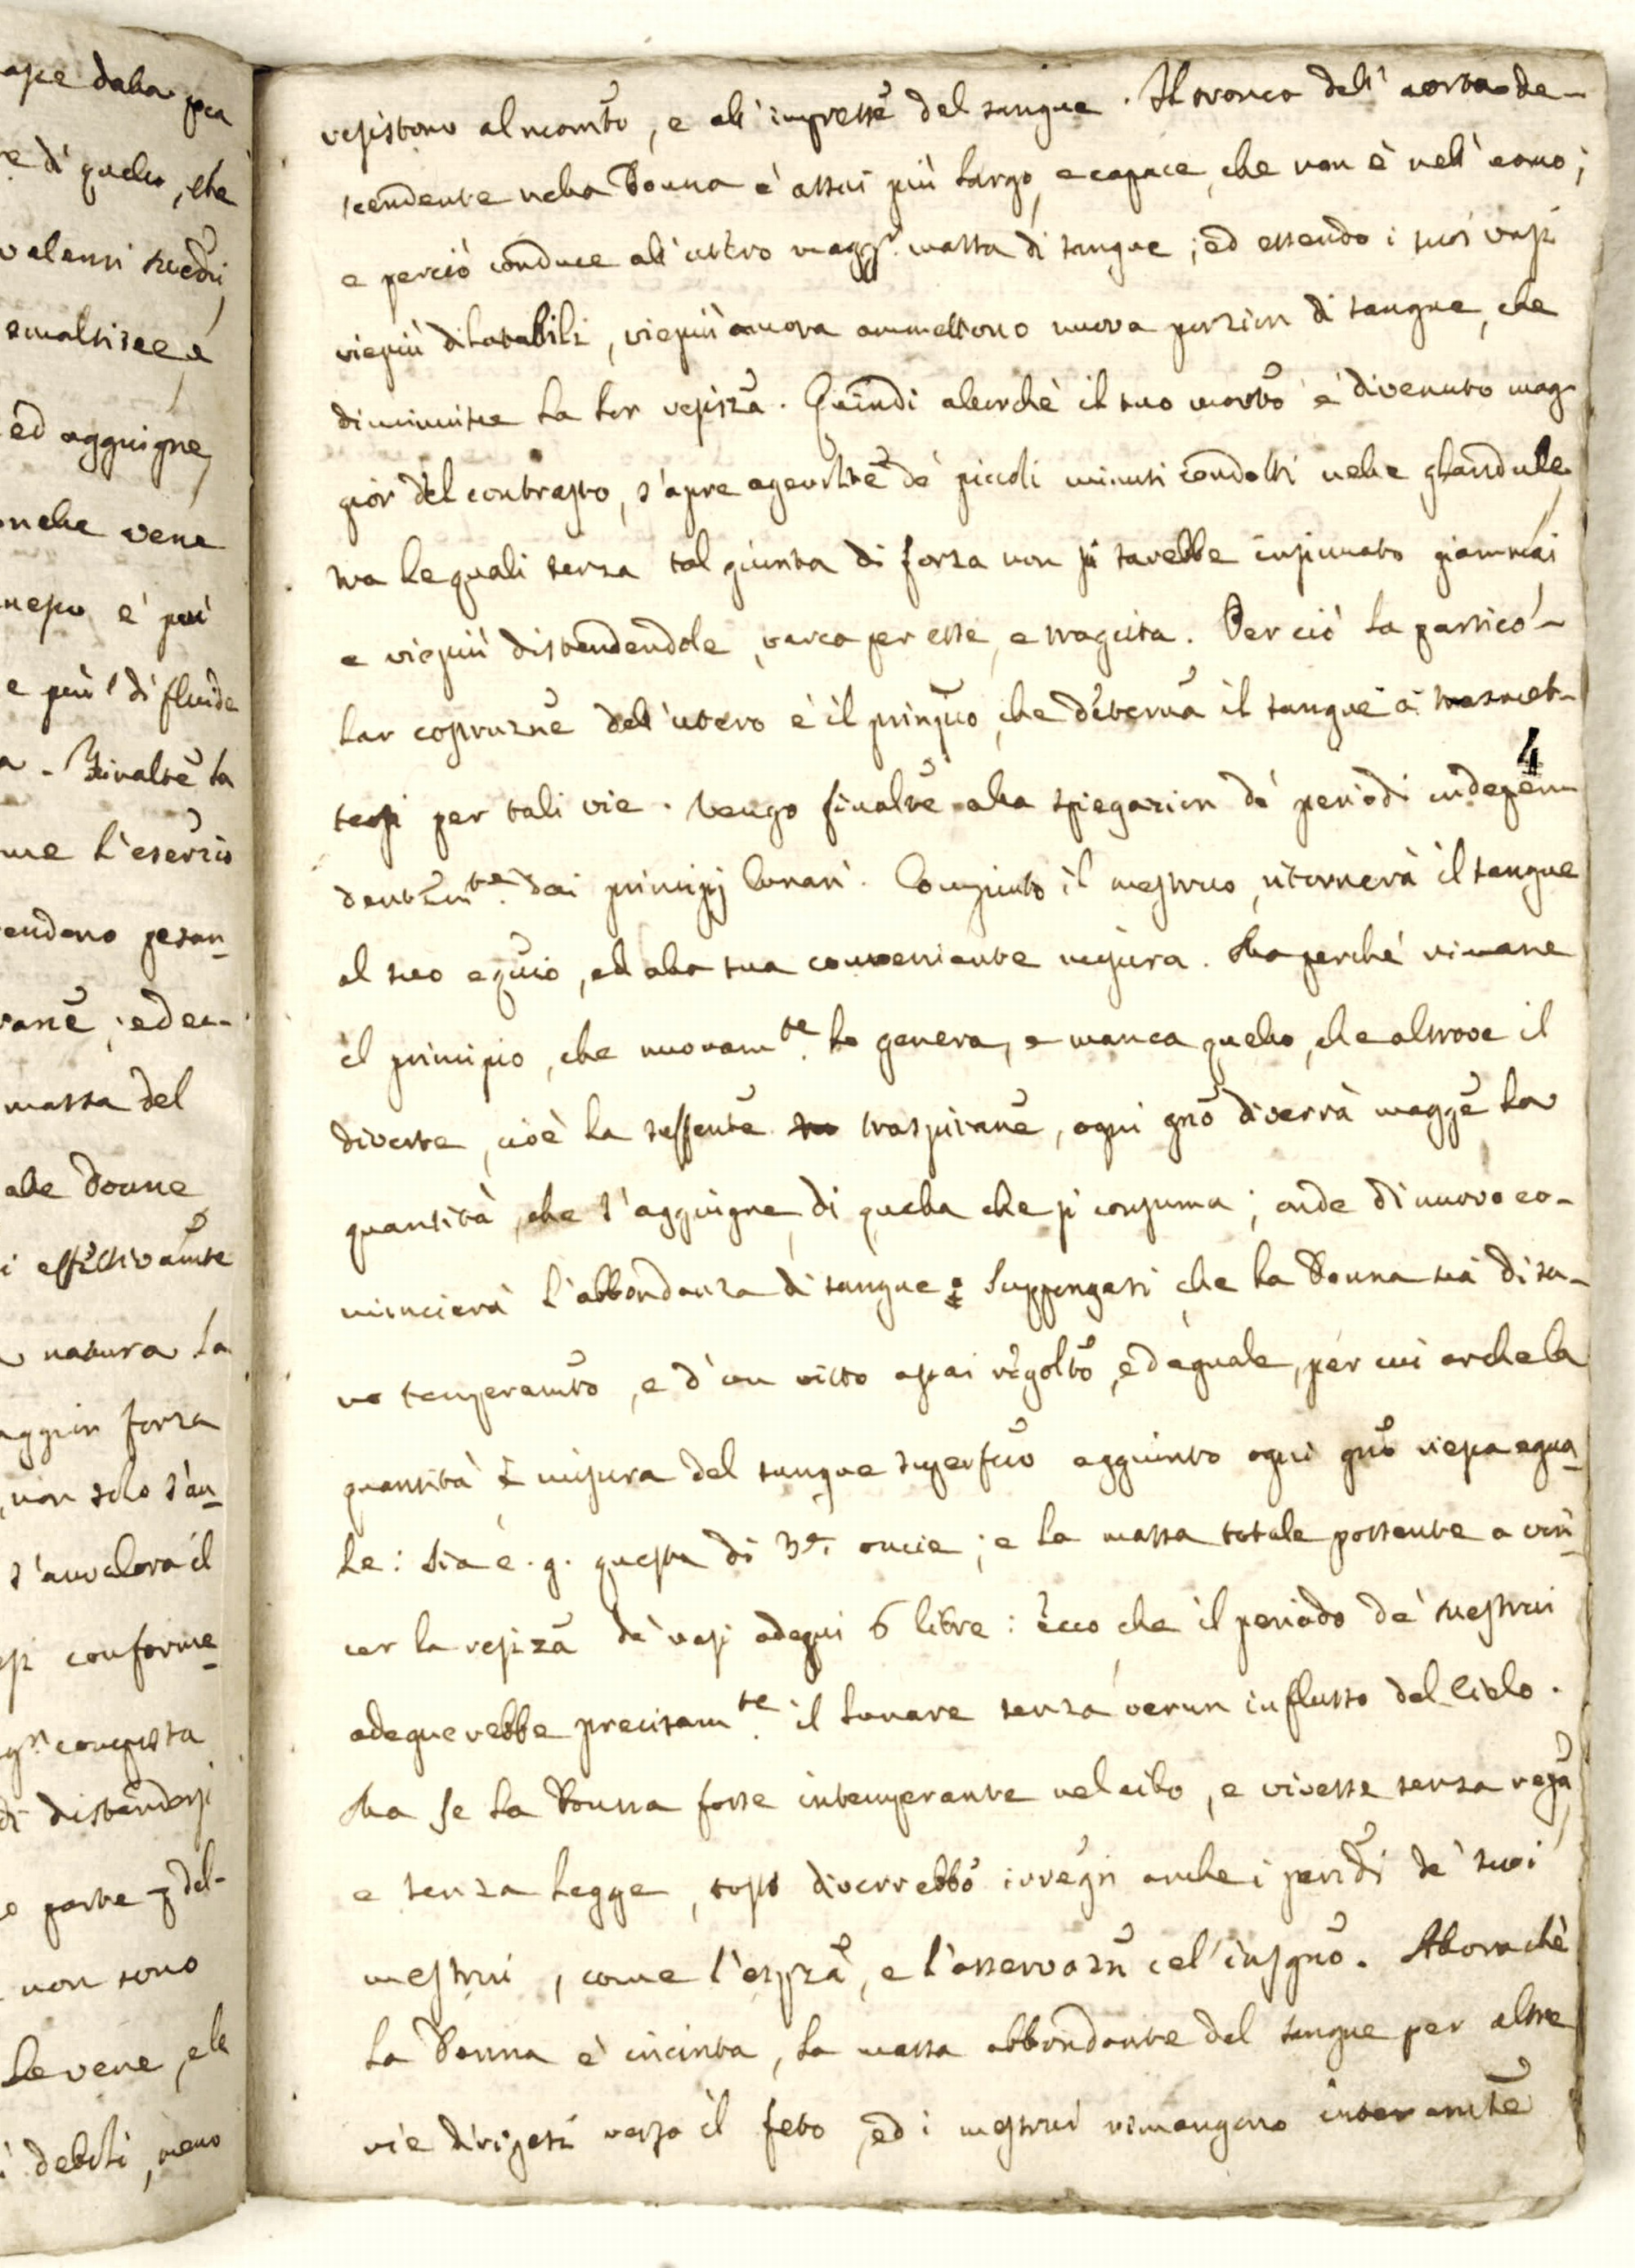 ape dalla per
e di quello, che
valenti medici
smaltisce e
ed aggiugne
nelle vene
e più
e più di fluido
a. Finaltẽ la
me l'eserzio
rendono pesan-
massa del
alle Donne
i effettivamte
natura la
aggior forza
non solo s'au-
s'avvalora il
conforme
composta
di distendersi
e parte del-
non sono
le vene, e le
i deboli, meno
resistono al momto, e all'impressẽ del sangue. Il tronco dell'aorta de-
scendente nella Donna è assai più largo, e capace, che non è nell'uomo;
e perciò conduce all'utero magg.r massa di sangue; ed essendo i suoi vasi
viepiù dilatabili, viepiù ancora ammettono nuova porzion di sangue, che
diminuisce la lor resisza. Quindi allorchè il suo momto è divenuto mag-
gior del contrasto, s'apre agevoltẽ de' piccoli minuti condotti nelle glandule,
tra le quali senza tal giunta di forza non si sarebbe insinuato giammai
e viepiù distendendole, varca per esse, e tragitta. Perciò la partico-
lar costruznẽ dell'utero è il prinpio, che determa il sangue a trasmet-
tersi per tali vie. Vengo finaltẽ alla spiegazion de' periodi indepen-
4
dentem.te dai principj lunari. Compiuto il mestruo, ritornerà il sangue
al suo equio, ed alla sua conveniente misura. Ma perchè rimane
il principio, che nuovam.te lo genera, e manca quello, che altrove il
diverte, cioè la suffente traspiranẽ, ogni gno diverrà maggẽ la
quantità, che s'aggiugne, di quella che si consuma; onde di nuovo co-
mincierà l'abbondanza di sangue: Suppongasi che la Donna sia di sa-
no temperamto, e d'un vitto assai regolto, ed eguale, per cui anche la
quantità e misura del sangue superfluo aggiunto ogni gno riesca egua-
le: Sia e. g. questa di 3. oncie; e la massa totale possente a vin-
cer la resisza de' vasi adegui 6 libre: ecco che il periodo de' mestrui
adeguerebbe precisam.te il lunare senza verun influsso del Cielo.
Ma se la Donna fosse intemperante nel cibo, e vivesse senza rega,
e senza legge, tosto diverrebbo irregri anche i peridi de' suoi
mestrui, come l'espza, e l'osservazn cel' insegno. Allorachè
la Donna è incinta, la massa abbondante del sangue per altre
vie dirigesi verso il feto, ed i mestrui rimangono interamtẽ